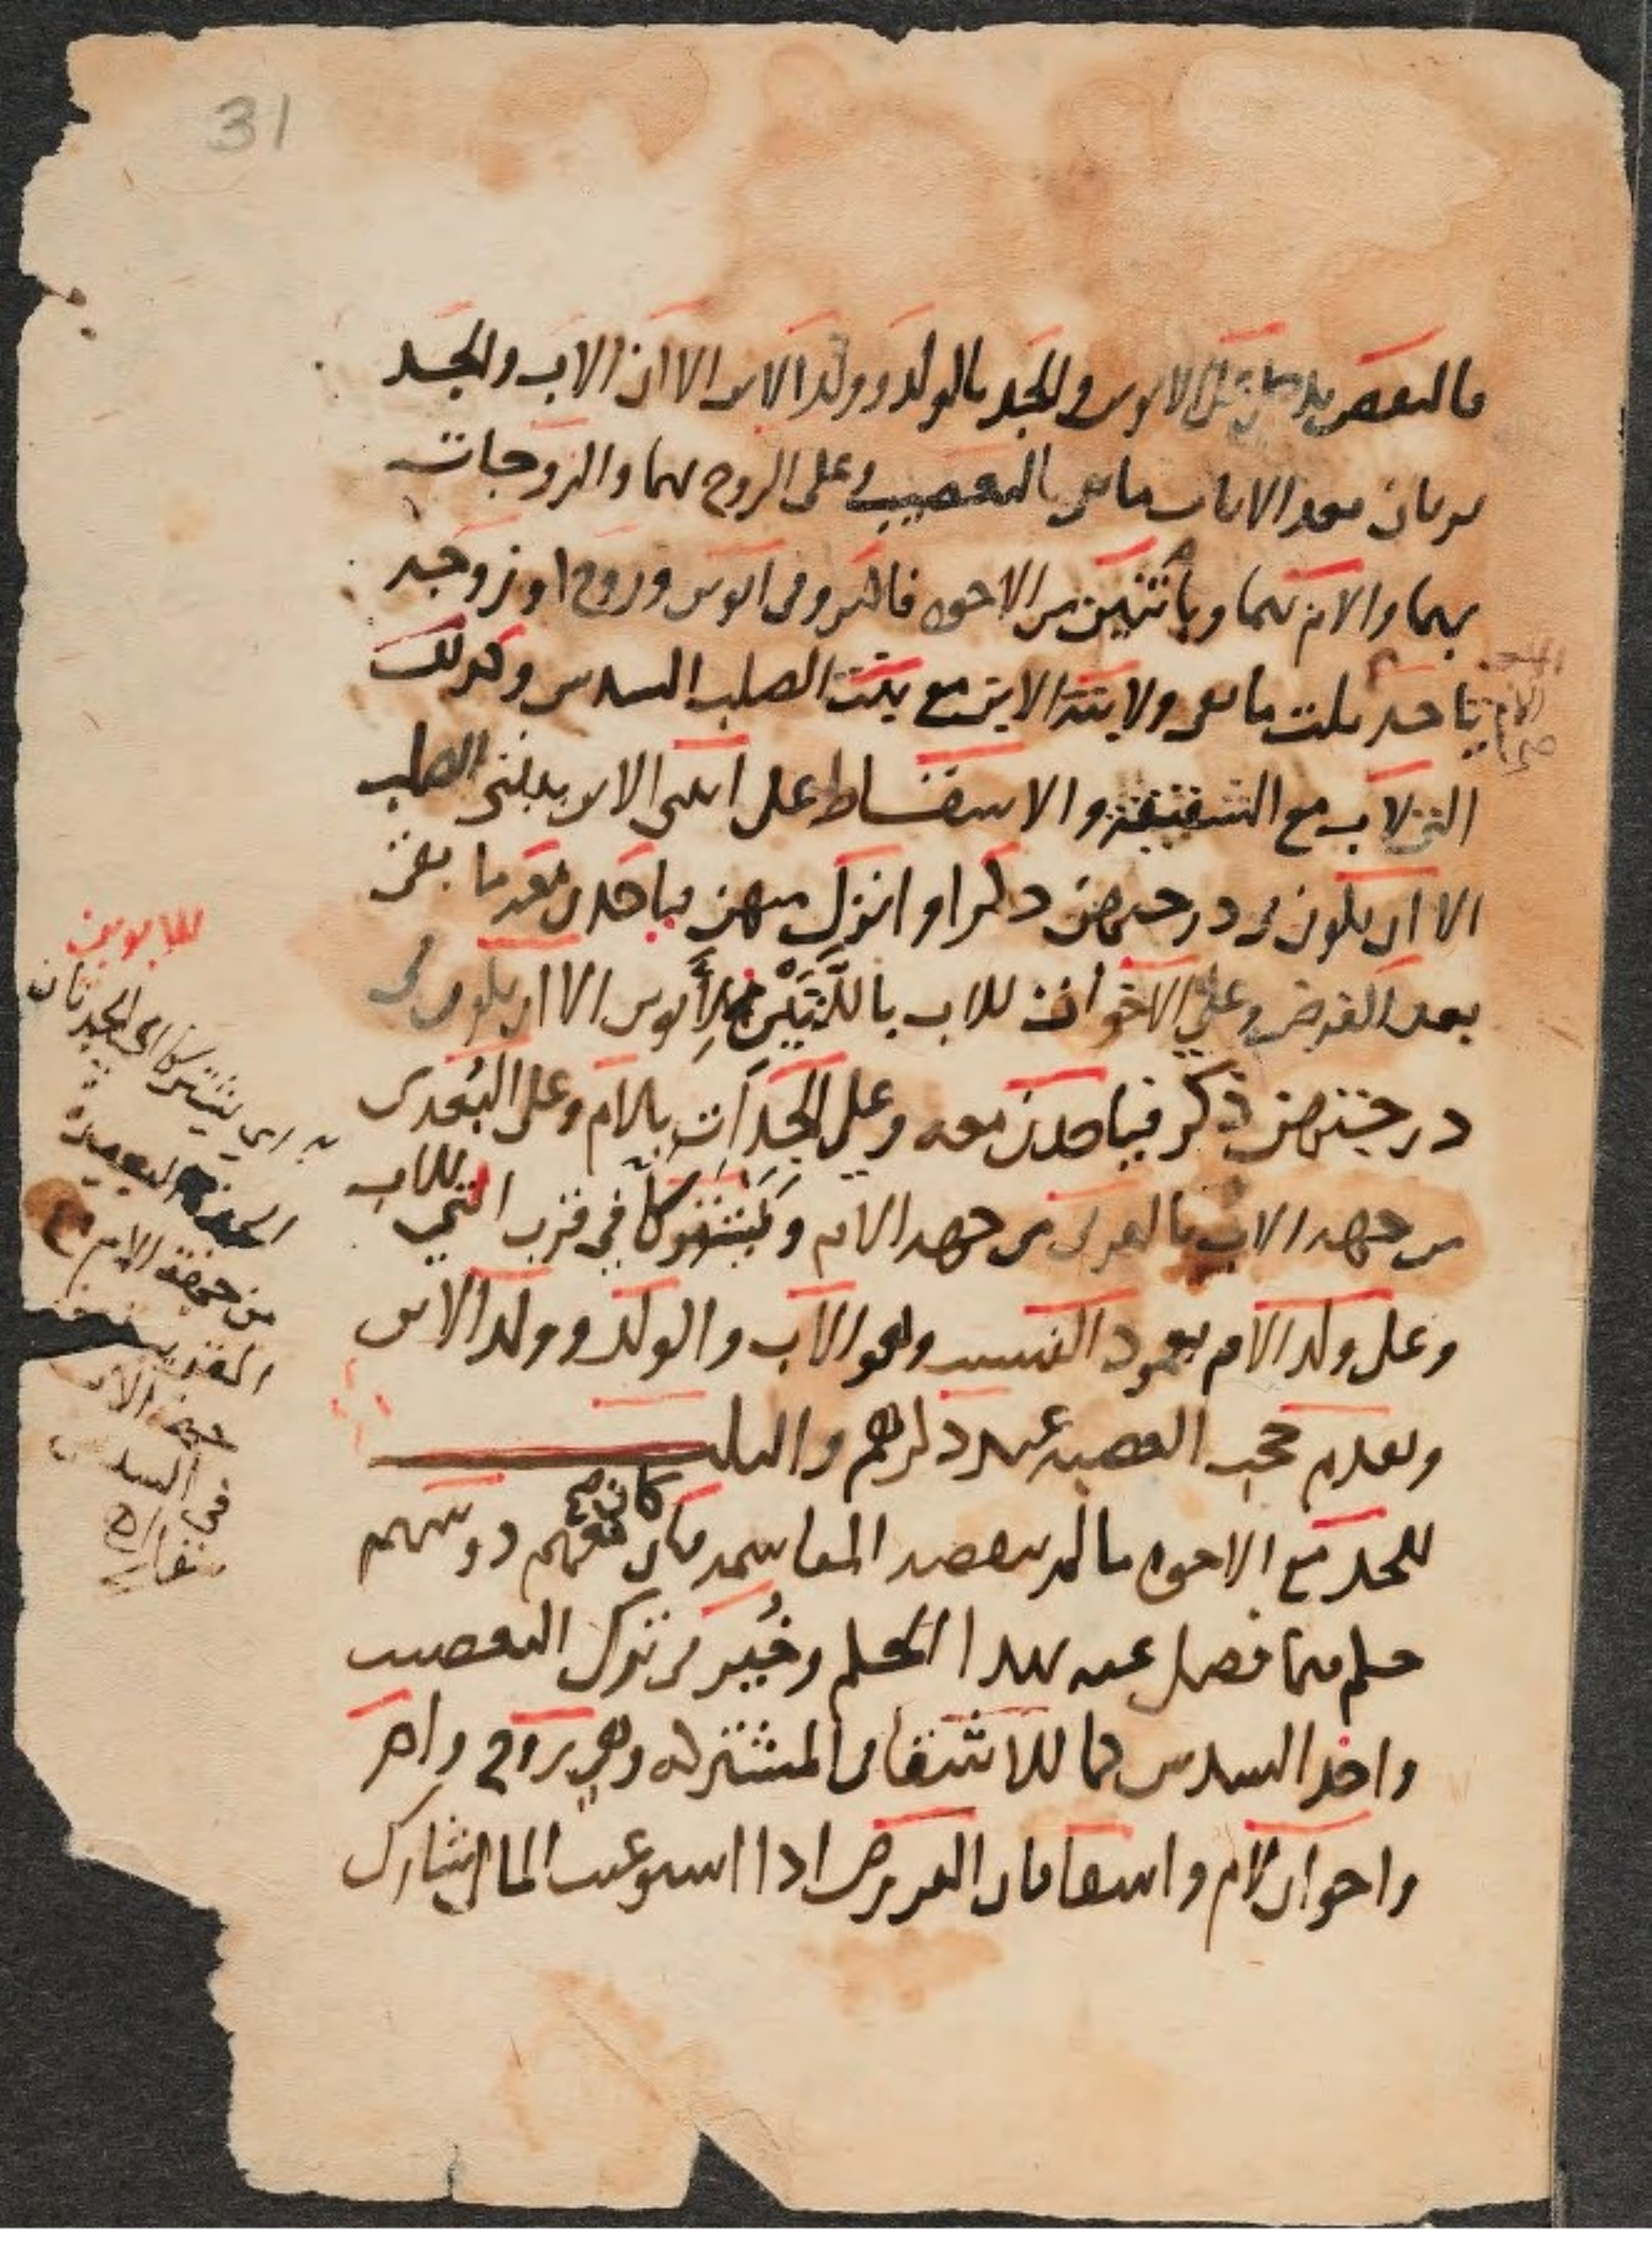 31
فالنقص يدخل على الابوين والجد بالولد وولد الابن الا ان الاب والجد
يرثان بعد الاناث ما بقي بالتعصيب وعلى الزوج بهما والزوجات
بهما والام بهما وباثنتين من الاخوة فاكثر وفي ابوين وزوج او زوجة
تاخذ ثلث ما بقي ولابنة الابن مع بنت الصلب السدس وكذلك
التي لاب مع الشقيقة والاسقاط على انثى الابن ببنتي الصلب
الا ان يكون في درجتهن ذكرا او انزل منهن فياخذن معه ما بقي
بعد الفرض وعلى الاخوات للاب باللتين للابوين الا ان يكون في
درجتهن ذكر فياخذن معه وعلى الجدات بالام وعلى البعدى
من جهة الاب بالقربى من جهة الام ويشتركا في قرب التي للاب
وعلى ولد الام بعمود النسب وهو الاب والولد وولد الابن
وتقدم حجب العصبة عند ذكرهم والثلث
للجد مع الاخوة ما لم تنقصه المقاسمة فان كان معهم ذو سهم
حكم فيما فضل عنه بهذا الحكم وخير في ترك التعصيب
واخذ السدس كما للاشقا في المشتركة وهي زوج وام
واخوان لام واشقا فان الفريضة اذا استوعبت المال شارك
للابوين
اي يشتركا اي الجدتان
الجدة البعيدة
من جهة الام مع
القريبة من
جهة الاب
في السدس